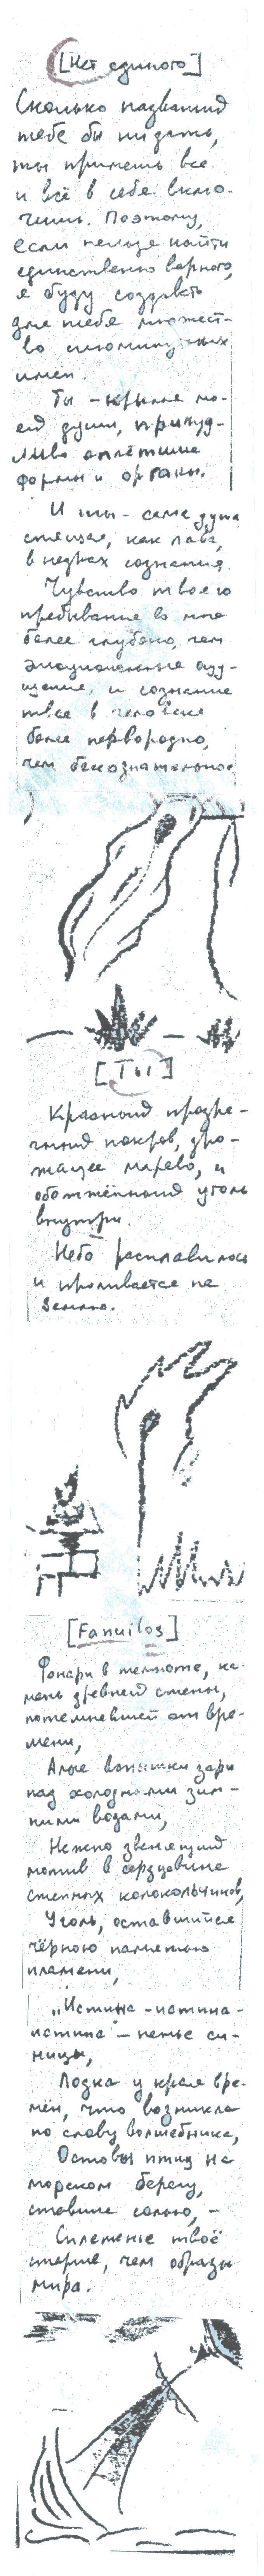 [Нет единого]
Сколько названий
тебе бы ни дать,
ты примешь все
и всё в себе вклю-
чишь. Поэтому,
если нельзя найти
единственно верного,
я буду создавать
для тебя множест-
во сиюминутных
имён.
Ты – крылья мо-
ей души, причуд-
ливо оплётшие
формы и органы.
И ты – сама душа
спящая, как лава,
в недрах сознания.
Чувство твоего
пребывания во мне
более глубоко, чем
эмоциональные ощу-
щения, и сознание
твоё в человеке
более первородно,
чем бессознательное
[Ты]
Красный прозра-
чный покров, дро-
жащее марево, и
обожжённый уголь
внутри.
Небо расплавилось
и проливается на
Землю.
[Fanuilos]
Фонари в темноте, ка-
мень древней стены,
потемневшей от вре-
мени,
Алые вспышки зари
над холодными зим-
ними водами,
Нежно звенящий
мотив в сердцевине
степных колокольчиков,
Уголь, оставшийся
чёрною памятью
пламени,
„Истина – истина –
истина" – пенье си-
ницы,
Лодка у края вре-
мён, что возникла
по слову волшебника,
Остовы птиц на
морском берегу,
ставшие солью, –
Сплетенье твоё
старше, чем образы
мира.